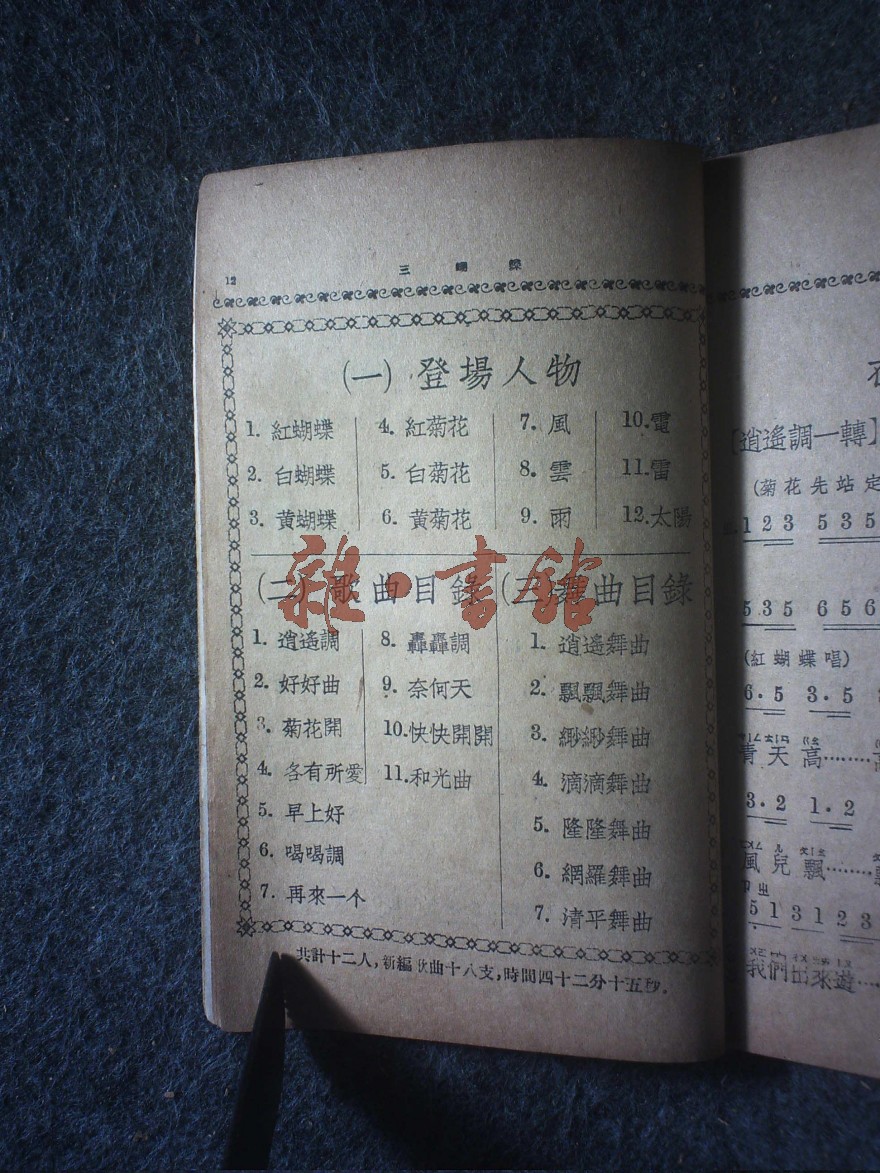 12
三 蝴 蝶
(一) 登場人物
1. 紅蝴蝶
2. 白蝴蝶
3. 黃蝴蝶
4. 紅菊花
5. 白菊花
6. 黃菊花
7. 風
8. 雲
9. 雨
10. 電
11. 雷
12. 太陽
(二) 歌曲目錄
1. 逍遙調
2. 好好曲
3. 菊花開
4. 各有所愛
5. 早上好
6. 喝喝調
7. 再來一个
8. 轟轟調
9. 奈何天
10. 快快開開
11. 和光曲
(三) 舞曲目錄
1. 逍遙舞曲
2. 飄飄舞曲
3. 緲緲舞曲
4. 滴滴舞曲
5. 隆隆舞曲
6. 網羅舞曲
7. 清平舞曲
共計十二人，新編歌曲十八支，時間四十二分十五秒．
雜·書館
[逍遙調一轉]
(菊花先站定
1 2 3 5 3 5
5 3 5 6 5 6
(紅蝴蝶唱)
6·5 3·5
青天高……
3·2 1·2
風兒飄……
5 1 3 1 2 3
我們出來遊……